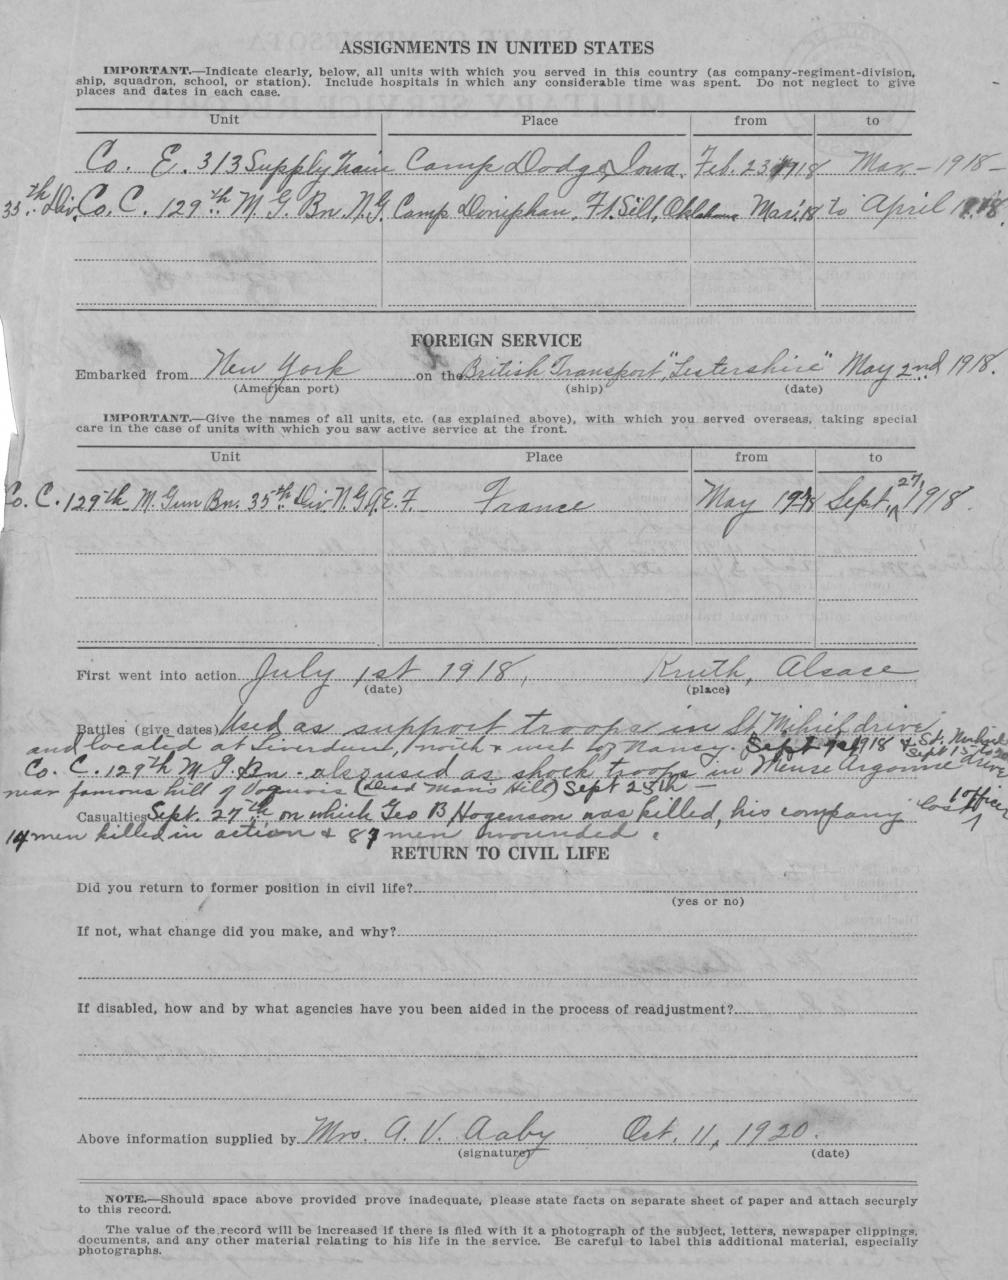 ASSIGNMENTS IN UNITED STATES
IMPORTANT.—Indicate clearly, below, all units with which you served in this country (as company-regiment-division,
ship, squadron, school, or station). Include hospitals in which any considerable time was spent. Do not neglect to give
places and dates in each case.
Unit Place from to
Co. E. 313 Supply Train Camp Dodge, Iowa. Feb. 23, 1918 Mar. – 1918 –
35th Div. Co. C. 129th M. G. Bn. N. G. Camp Doniphan, Ft. Sill, Oklahoma Mar. 18 to April 1918.
FOREIGN SERVICE
Embarked from New York on the British Transport, "Lestershire" May 2nd 1918.
(American port) (ship) (date)
IMPORTANT.—Give the names of all units, etc. (as explained above), with which you served overseas, taking special
care in the case of units with which you saw active service at the front.
Unit Place from to
Co. C. 129th M. Gun Bn. 35th Div. N. G. A. E. F. France May 1918 Sept. 27, 1918.
First went into action July 1st 1918, Kruth, Alsace
(date) (place)
Battles (give dates) Used as support troops in St. Mihiel drive
and located at Liverdun, north & west of Nancy. Sept 1918 &
Co. C. 129th M G. Bn. also used as shock troops in Meuse Argonne drive
near famous hill of Voquois (Dead Man's Hill) Sept 25th –
Casualties Sept. 27th on which Geo B Hogenson was killed, his company
14 men killed in action & 87 men wounded.
RETURN TO CIVIL LIFE
Did you return to former position in civil life?
(yes or no)
If not, what change did you make, and why?
If disabled, how and by what agencies have you been aided in the process of readjustment?
Above information supplied by Mrs. A. V. Aaby Oct. 11, 1920.
(signature) (date)
NOTE.—Should space above provided prove inadequate, please state facts on separate sheet of paper and attach securely
to this record.
The value of the record will be increased if there is filed with it a photograph of the subject, letters, newspaper clippings,
documents, and any other material relating to his life in the service. Be careful to label this additional material, especially
photographs.